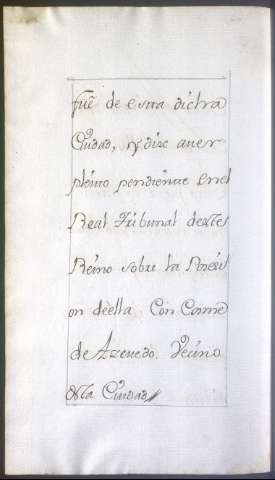 fuê de esta dicha
Ciudad, y dize aver
pleito pendiente En el
Real Tribunal deste
Reino sobre la Posesi
on deella Con Cosme
de Azevedo Vecino
desta Ciudad